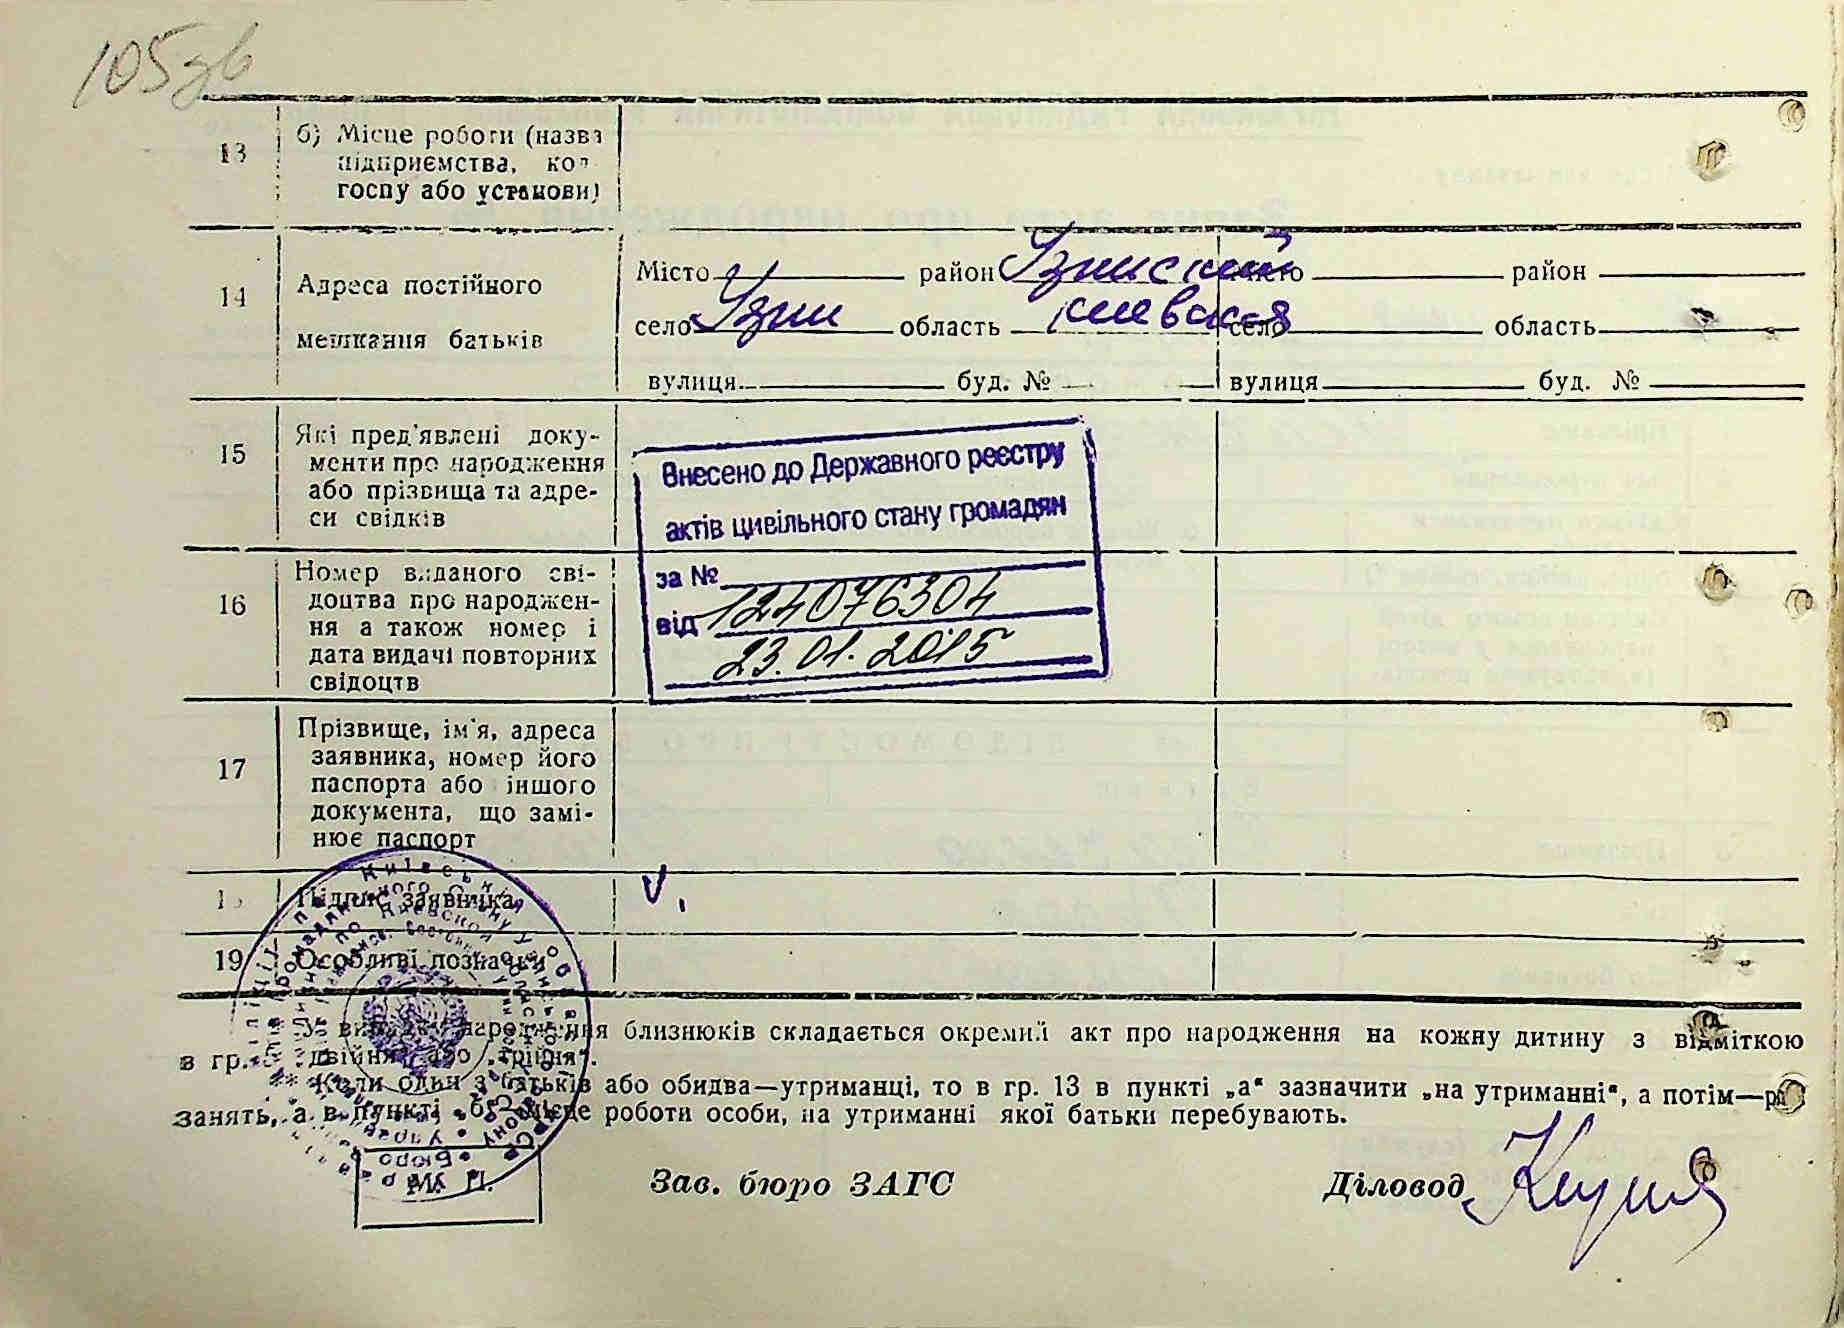 105зв
13 б) Місце роботи (назва
підприємства, кол-
госпу або установи)
14 Адреса постійного
мешкання батьків
Місто район Узинский Місто район
село Узин область Киевская село область
вулиця буд. № вулиця буд. №
15 Які пред'явлені доку-
менти про народження
або прізвища та адре-
си свідків
Внесено до Державного реєстру
актів цивільного стану громадян
за № 124076304
від 23.01.2015
16 Номер виданого сві-
доцтва про народжен-
ня а також номер і
дата видачі повторних
свідоцтв
17 Прізвище, ім'я, адреса
заявника, номер його
паспорта або іншого
документа, що замі-
нює паспорт
18 Підпис заявника V.
19 Особливі позначки
У випадку народження близнюків складається окремий акт про народження на кожну дитину з відміткою
в гр. двійня" або „трійня".
** Коли один з батьків або обидва—утриманці, то в гр. 13 в пункті „а" зазначити „на утриманні", а потім—рід
занять, а в пункті „б"—місце роботи особи, на утриманні якої батьки перебувають.
М. П.
Зав. бюро ЗАГС Діловод